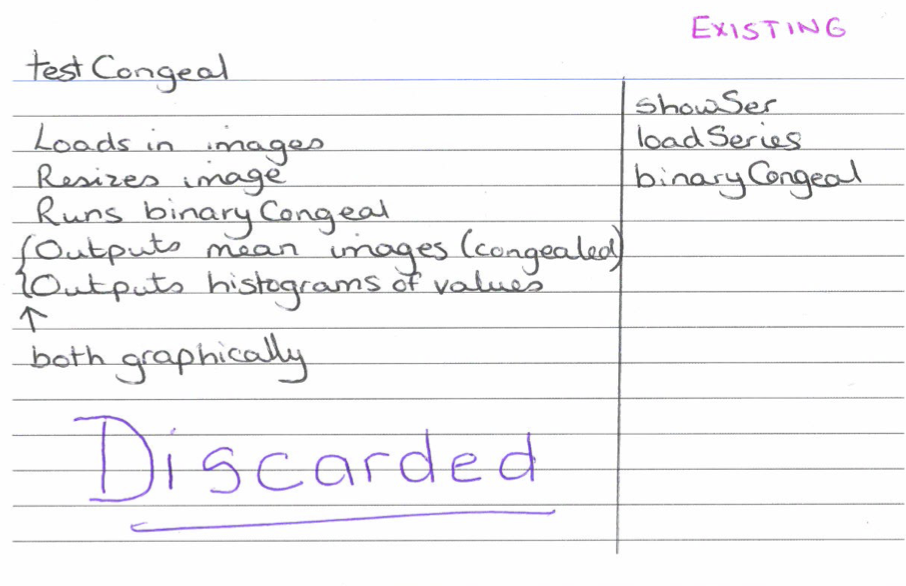 EXISTING
testCongeal
Loads in images
Resizes image
Runs binaryCongeal
Outputs mean images (congealed)
Outputs histograms of values
↑
both graphically
showSer
loadSeries
binaryCongeal
Discarded